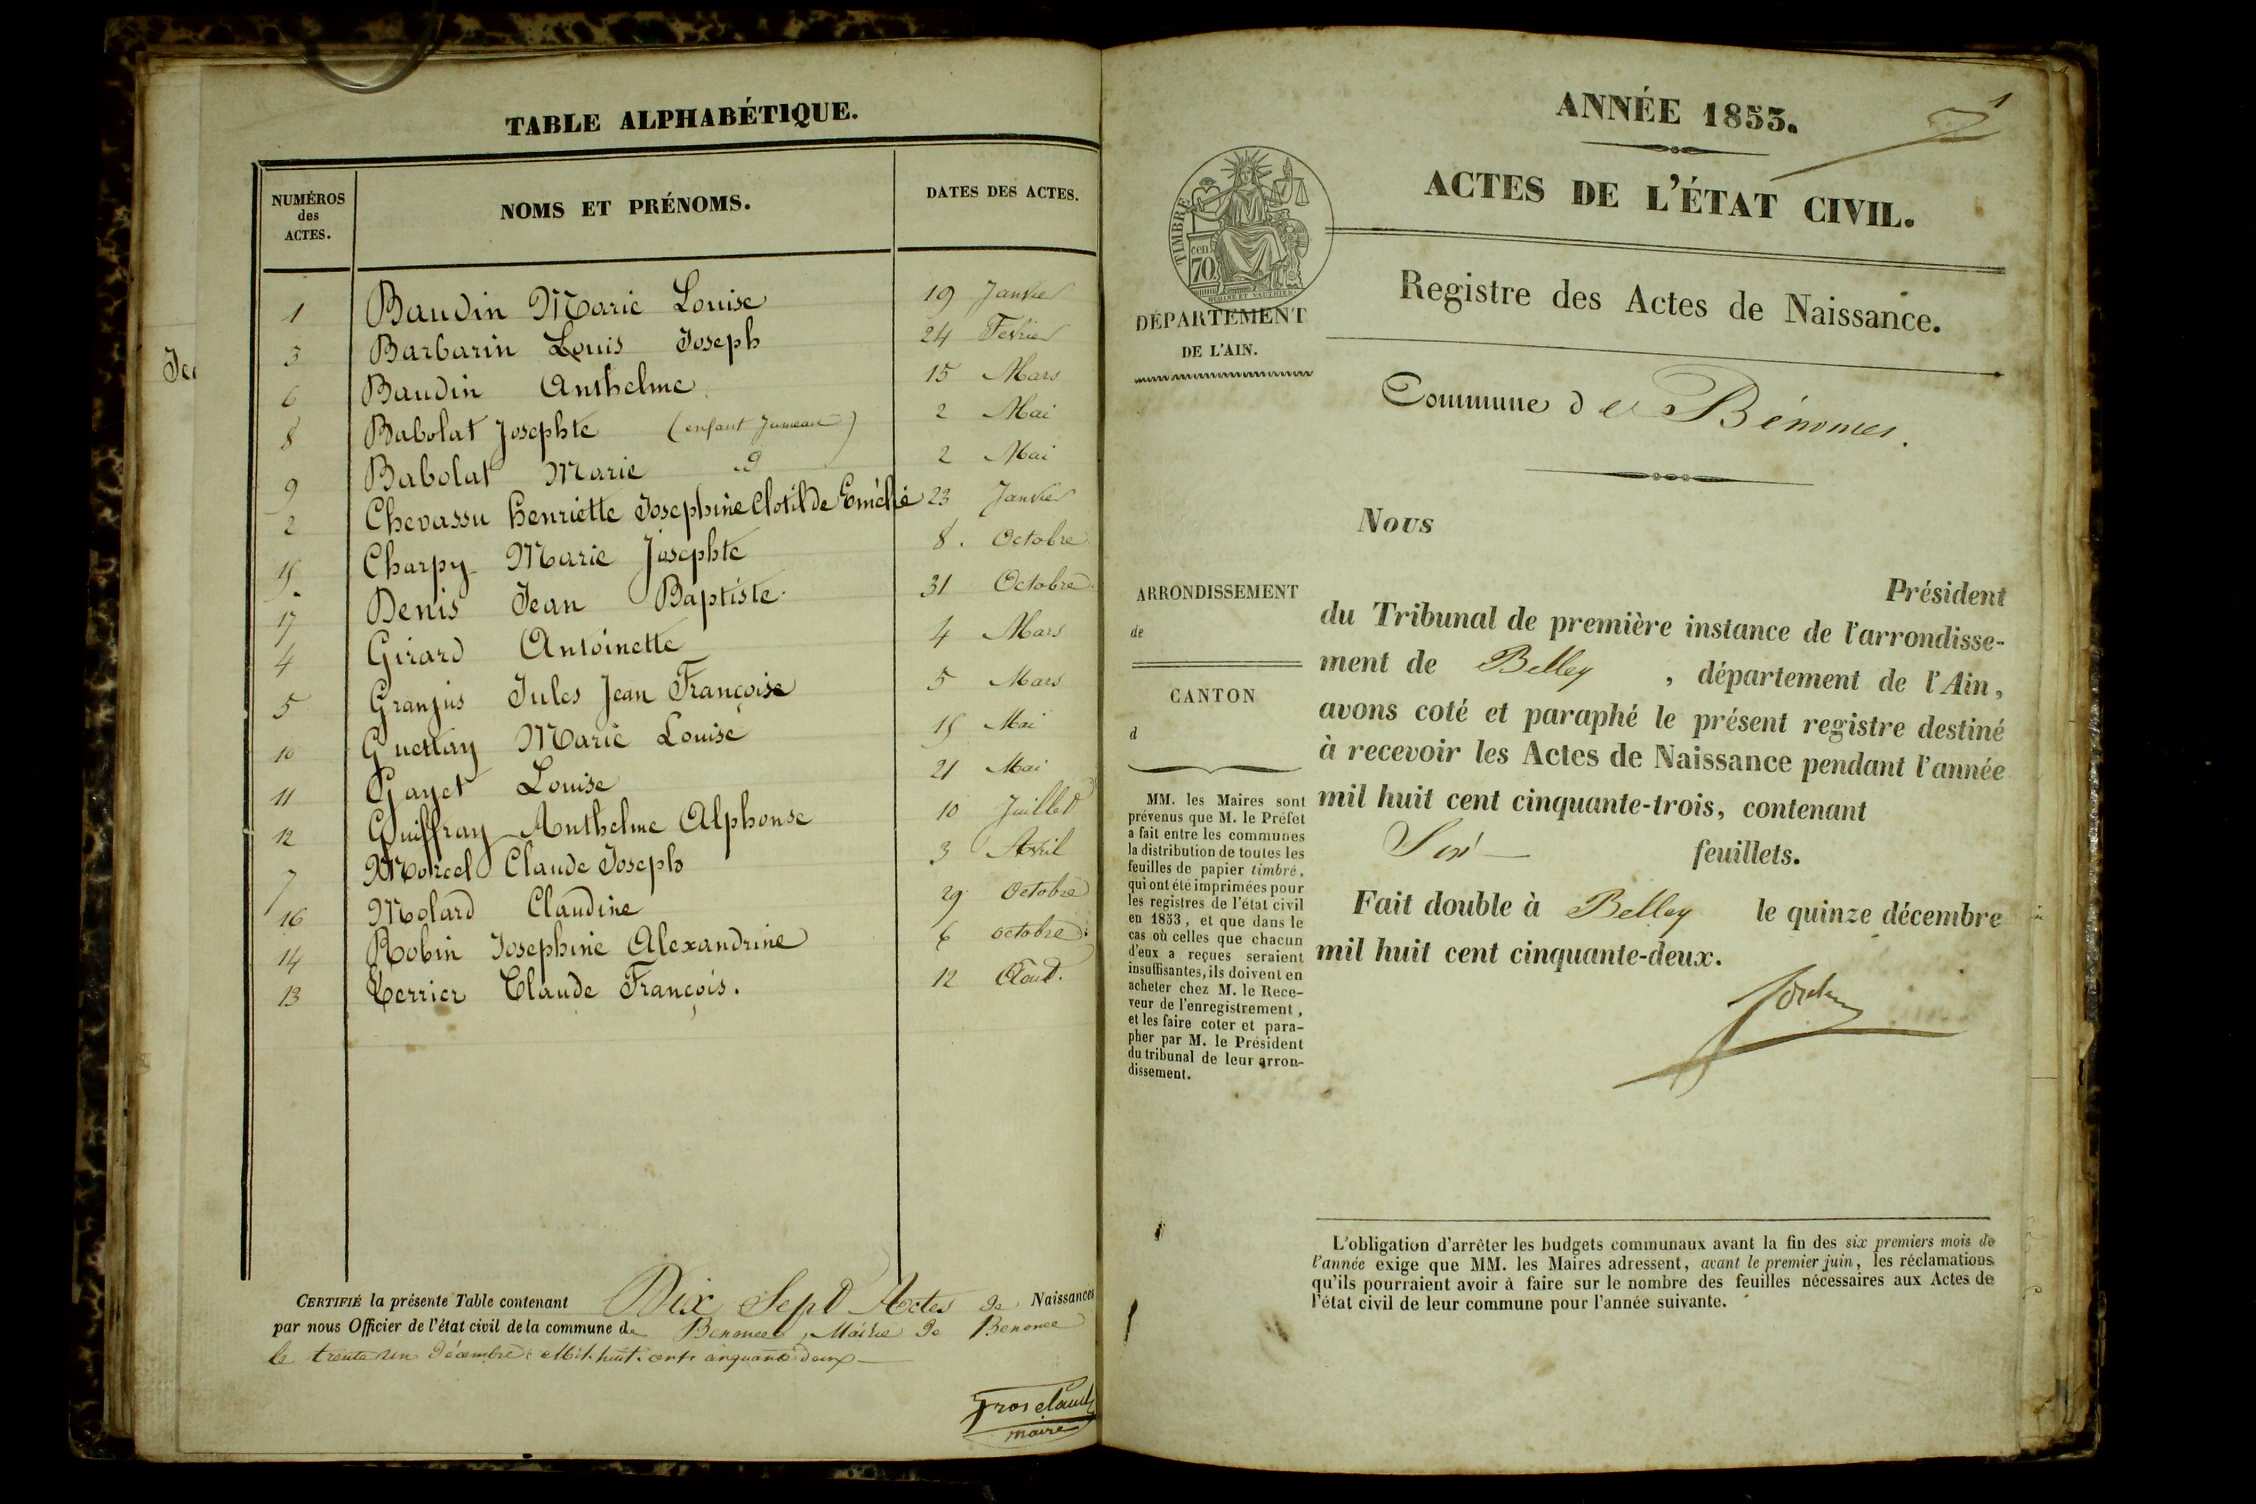 TABLE ALPHABÉTIQUE.
NUMÉROS
des
ACTES.
NOMS ET PRÉNOMS.
DATES DES ACTES.
1 Baudin Marie Louise 19 Janvier
3 Barbarin Louis Joseph 24 Fevrier
6 Baudin Anthelme 15 Mars
8 Babolat Josephte (enfant Jumeau) 2 Mai
9 Babolat Marie d 2 Mai
2 Chevassu henriette Josephine Clotilde Emélie 23 Janvier
15 Charpy Marie Josephte 8. Octobre
17 Denis Jean Baptiste 31 Octobre
4 Girard Antoinette 4 Mars
5 Granjus Jules Jean Françoise 5 Mars
10 Marie Louise 15 Mai
11 Gayet Louise 21 Mai
12 Guiffray Anthelme Alphonse 10 Juillet
7 Morcel Claude Joseph 3 Avril
16 Molard Claudine 29 Octobre
14 Robin Josephine Alexandrine 6 octobre
13 Verrier Claude François. 12 Aout.
CERTIFIÉ la présente Table contenant Dix Sept Actes de Naissances
par nous Officier de l'état civil de la commune de Benonce, Mairie de Benonce
le trente un décembre Mil huit cent cinquante deux
Grosclaude
maire
ANNÉE 1853.
1
ACTES DE L'ÉTAT CIVIL.
TIMBRE
cen
70
DÉPARTEMENT
DE L'AIN.
Registre des Actes de Naissance.
Commune de Bénonces.
Nous
Président
du Tribunal de première instance de l'arrondisse-
ment de Belley, département de l'Ain,
avons coté et paraphé le présent registre destiné
à recevoir les Actes de Naissance pendant l'année
mil huit cent cinquante-trois, contenant
Six feuillets.
Fait double à Belley le quinze décembre
mil huit cent cinquante-deux.
ARRONDISSEMENT
de
CANTON
d
MM. les Maires sont
prévenus que M. le Préfet
a fait entre les communes
la distribution de toutes les
feuilles de papier timbré,
qui ont été imprimées pour
les registres de l'état civil
en 1853, et que dans le
cas où celles que chacun
d'eux a reçues seraient
insuffisantes, ils doivent en
acheter chez M. le Rece-
veur de l'enregistrement,
et les faire coter et para-
pher par M. le Président
du tribunal de leur arron-
dissement.
L'obligation d'arrêter les budgets communaux avant la fin des six premiers mois de
l'année exige que MM. les Maires adressent, avant le premier juin, les réclamations
qu'ils pourraient avoir à faire sur le nombre des feuilles nécessaires aux Actes de
l'état civil de leur commune pour l'année suivante.